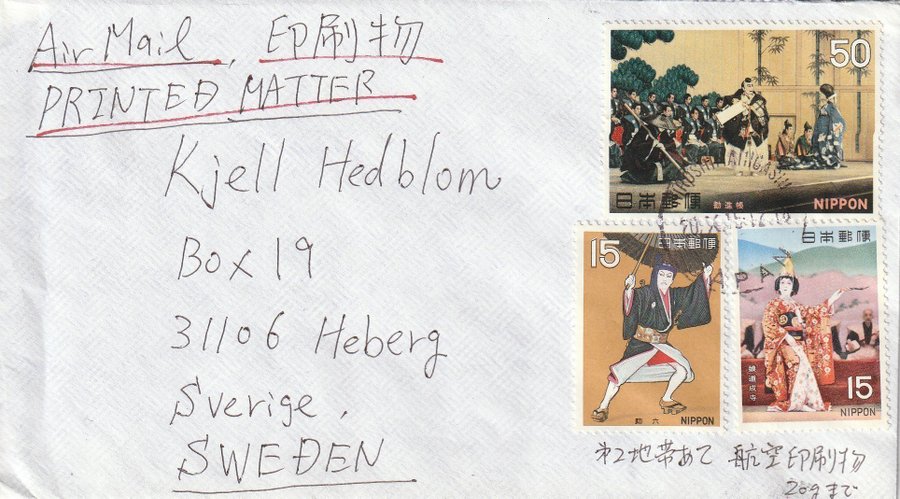 Air Mail, 印刷物
PRINTED MATTER
Kjell Hedblom
Box 19
31106 Heberg
Sverige,
SWEDEN
50
日本郵便
勧進帳
NIPPON
15
日本郵便
助六
NIPPON
日本郵便
娘道成寺
15
NIPPON
JAPAN
第2地帯あて 航空印刷物
20gまで